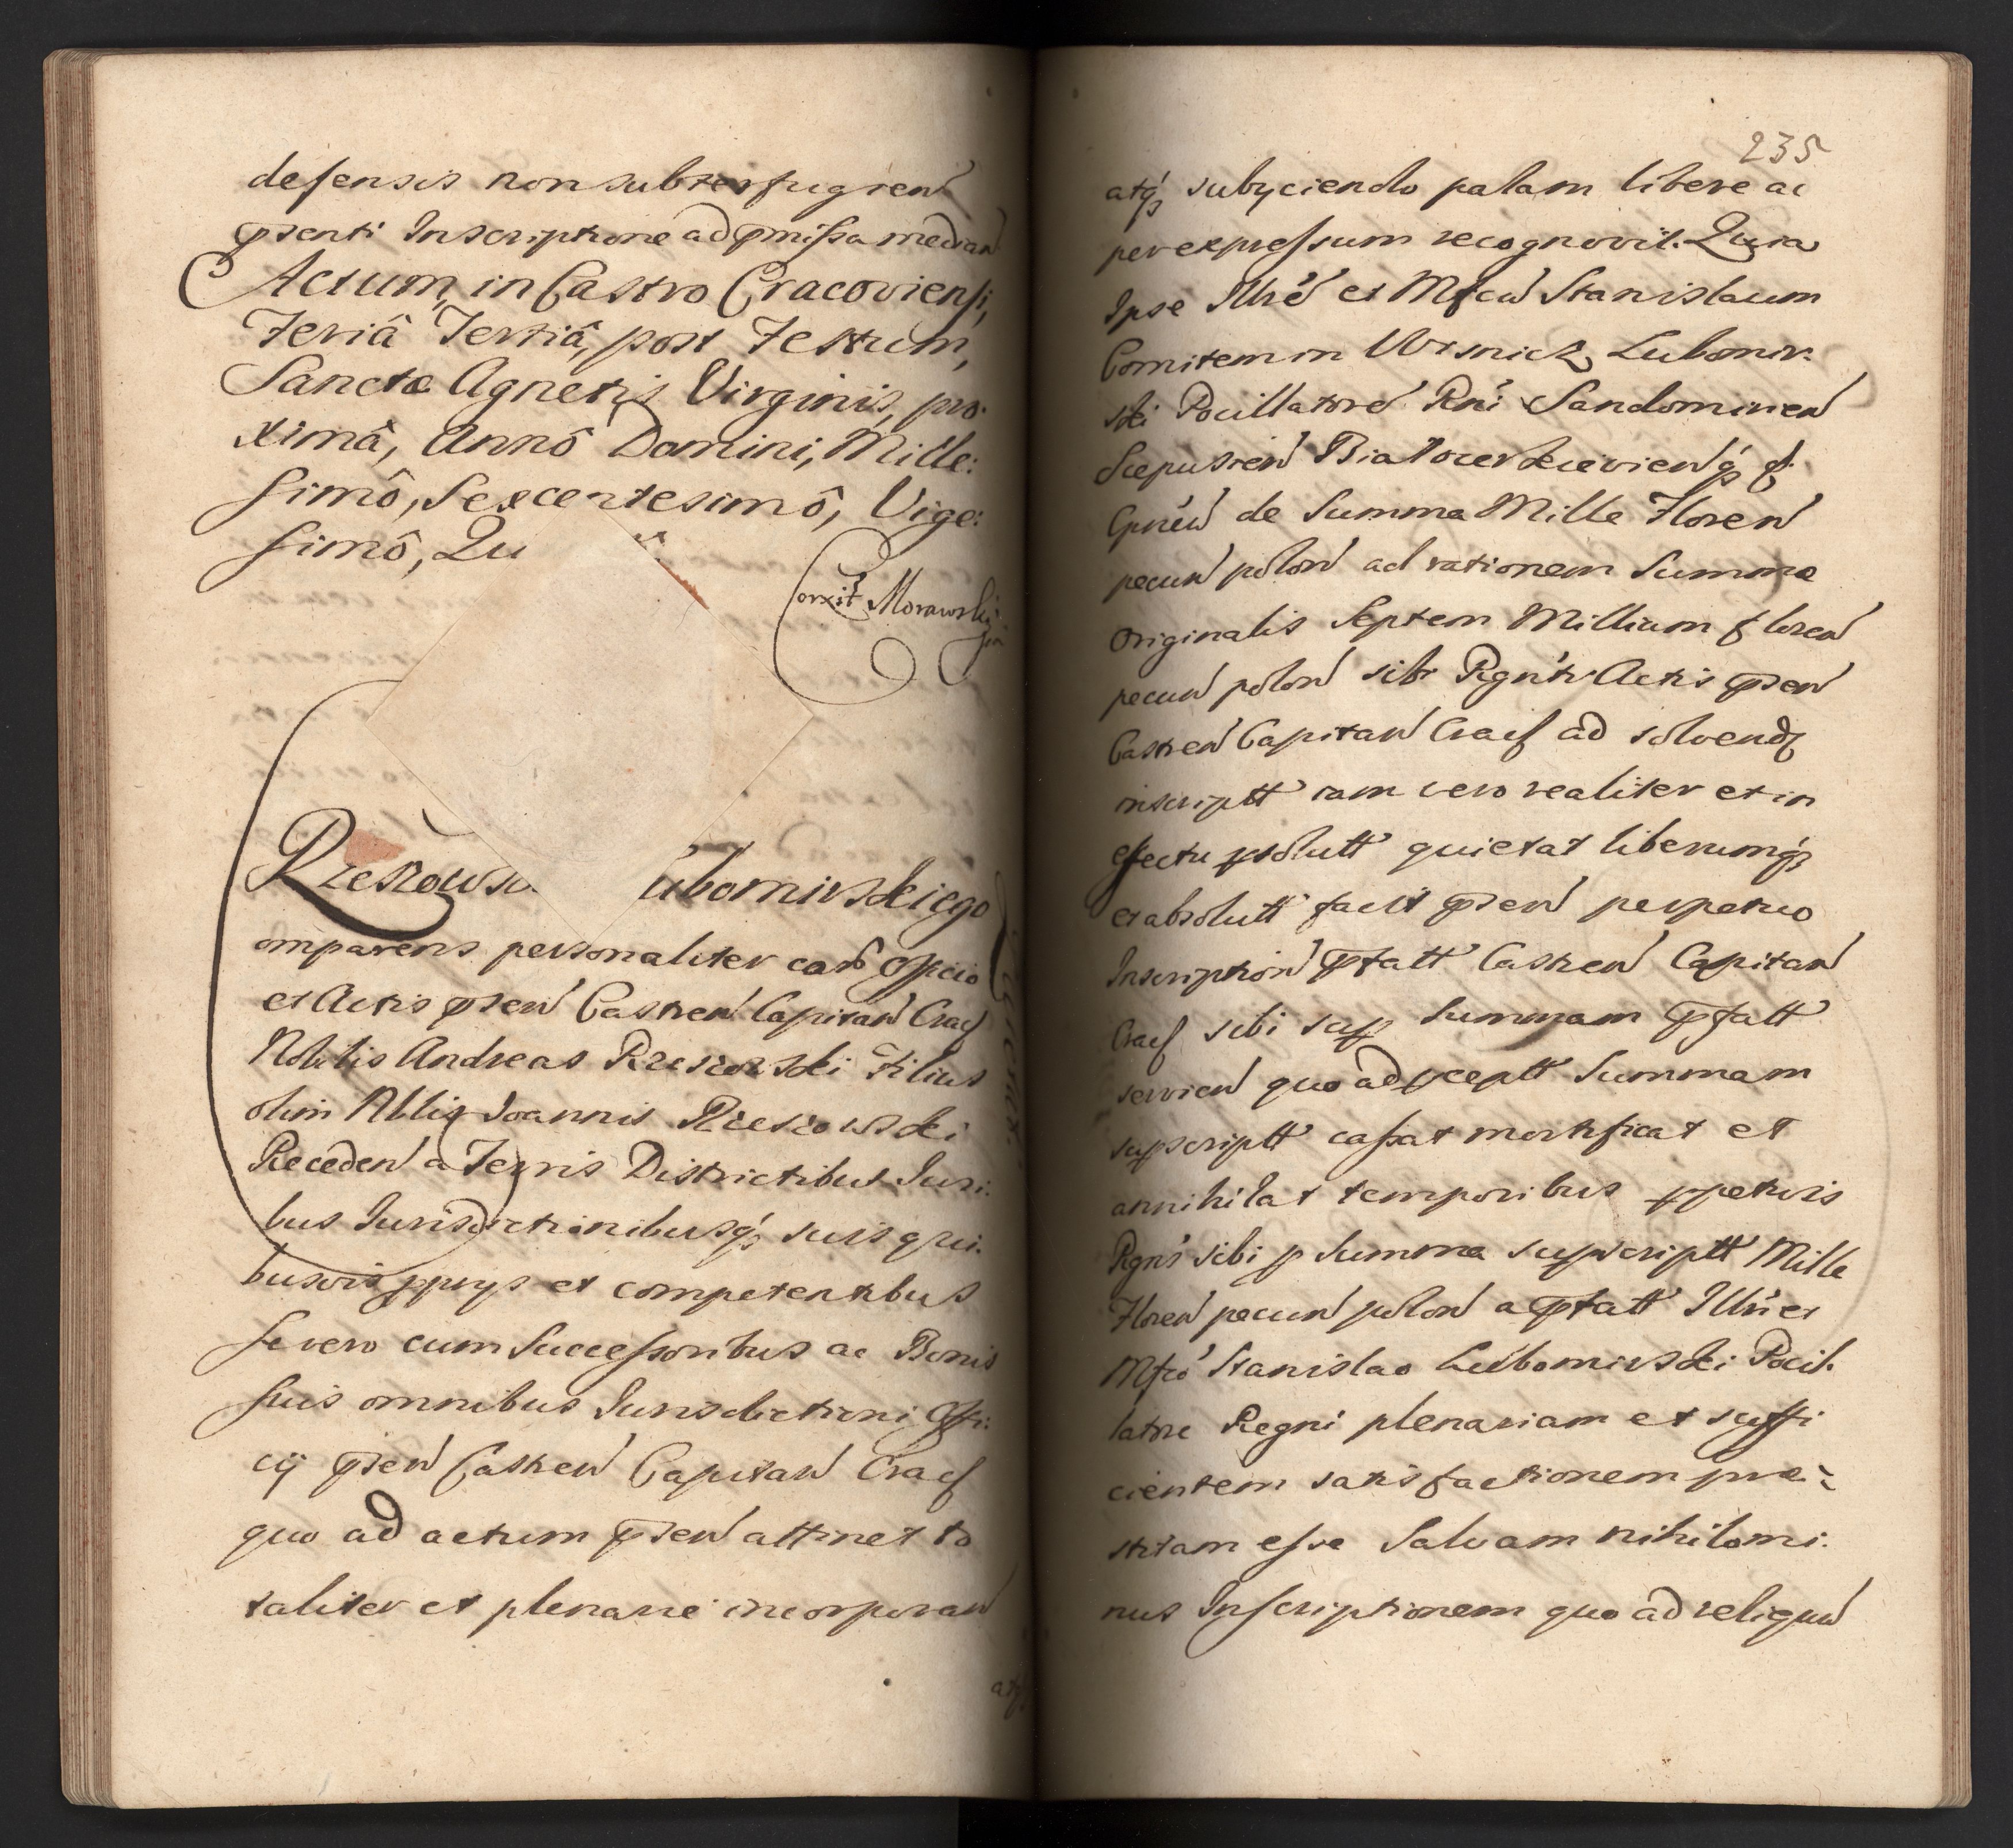 defensis non subterfugien
pnsenti Inscriptione ad pmissa median
Actum, in Castro Cracoviensi,
Feriâ Tertiâ, post Festum,
Sanctæ Agnetis Virginis, pro:
ximâ, Annô Domini, Mille:
simô, Sexcentesimô, Vige:
simô, Qu
Corxit Morawsky
Rzeszowski
ubomirskiego
omparens personaliter cora officio
et Actis psen Castren Capitan Crac
Nobilis Andreas Rzeszowski Filius
olim Nblis Joannis Rzeszowski
Receden a Terris Districtibus Juri:
bus Jurisdictionibusq suis qui:
busvis pprys et competentibus
se vero cum Successoribus ac Bonis
suis omnibus Jurisdictioni Offi:
cij psen Castren Capitan Crac
quo ad actum psen attinet to
taliter et plenarie incorporan
atq
235
atq subyciendo palam libere ac
per expressum recognovit. Quia
Ipse Illre et Mfcu Stanislaum
Comitem in Wisnicz Lubomir:
ski Pocillatore Rni Sandomirien
Scepusien Biatocerkievienq
Gneu de Summa Mille Floren
pecun polon ad rationem Summæ
Originalis Septem Millium floren
pecun polon sibi Rgnti Actis psen
Castren Capitan Crac ad solvend
inscriptt iam vero realiter et in
effectu psolutt quietat liberumq
et absolutt facit psen perpetuo
Inscription pfatt Castren Capitan
Crac sibi sup Summam pfatt
servien quo ad pceptt Summam
supscriptt cassat mortificat et
annihilat temporibus ppetuis
Rgns sibi p Summa supscriptt Mille
Floren pecun polon a pfatt Illri et
Mfco Stanislao Lubomirski Pocil:
latore Regni plenariam et suffi
cientem satisfactionem præ:
stitam esse Salvam nihilomi:
nus Inscriptionem quo ad reliquu